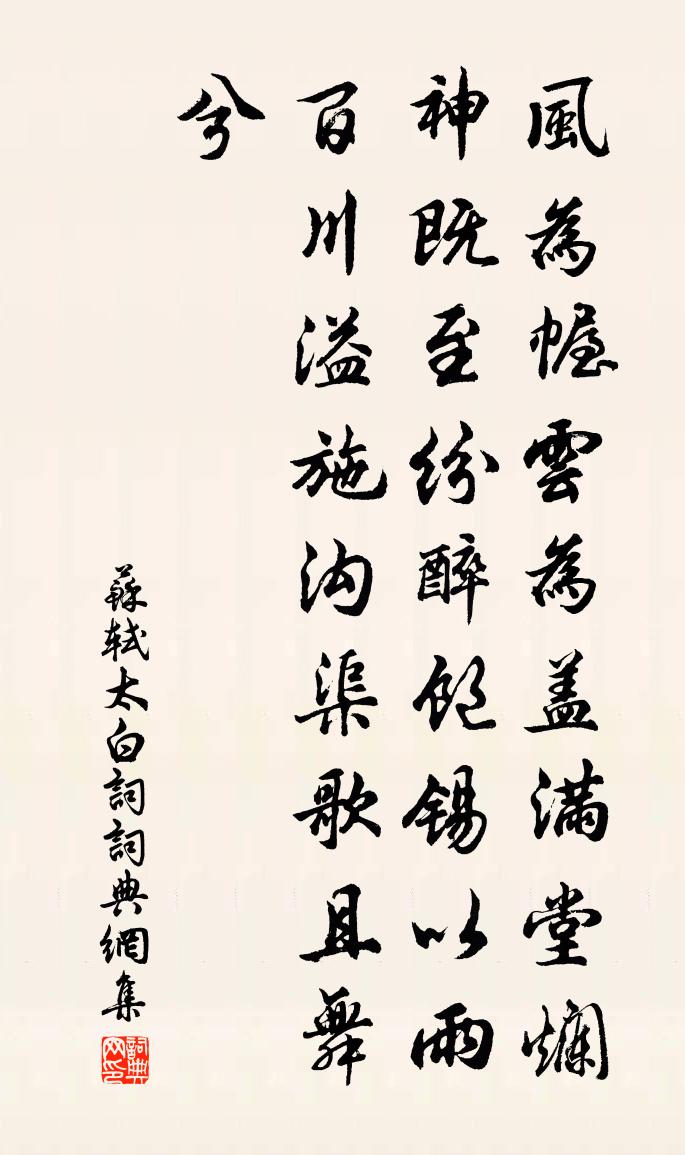 風為幄雲為盖滿堂爛
神既至紛醉飽錫以雨
百川溢施沟渠歌且舞
兮
蘇軾太白詞詞典網集
詞典网印